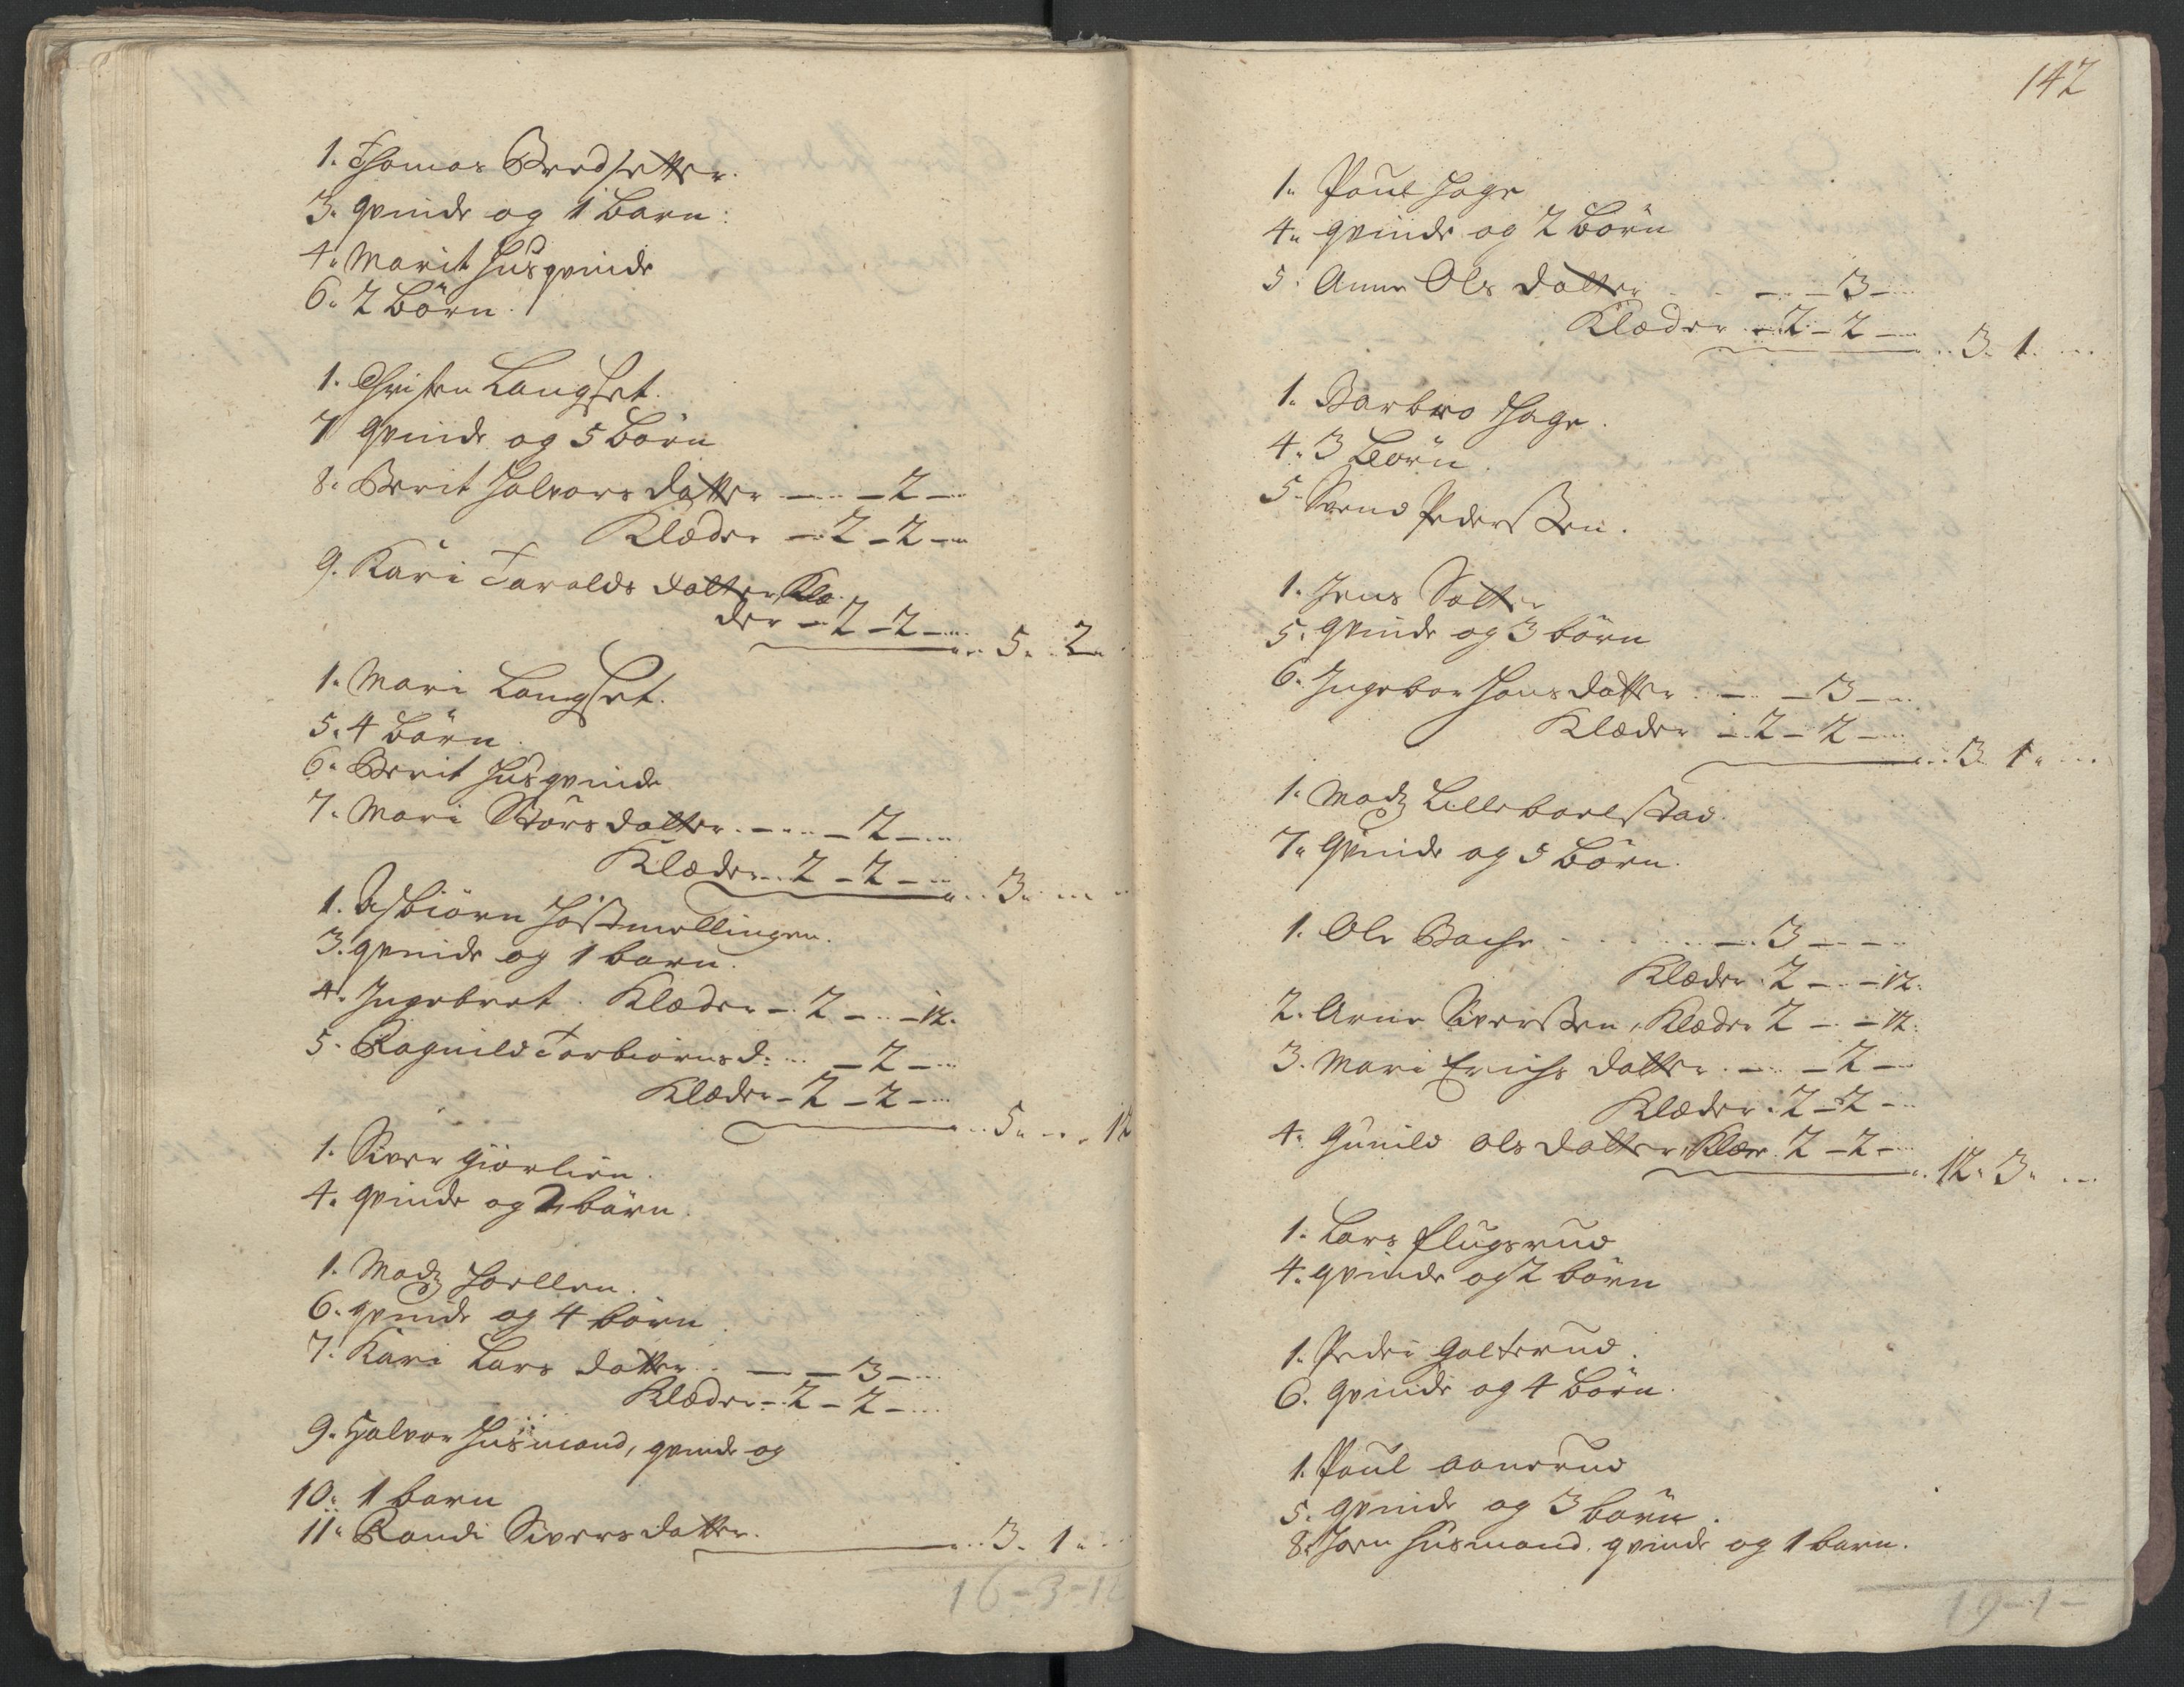 1. Thomas Bredsetter.
3. qvinde og 1 Barn:
4. Marit Husqvinde
6. 2 Börn.
1. Christen Langset.
7 qvinde og 5 Börn
8. Berit Halvors datter — — 2 —
Klæder — 2 — 2 —
9. Kari Taralds datter Klæ
der — 2 — 2 — 5. 2.
1. Mari Langset.
5. 4 Börn.
6. Berit Husqvinde
7. Mari Börs datter. — — 2 —
Klæder. 2 — 2 — 3.
1. Asbiörn
3. qvinde og 1 barn.
4. Ingebret. Klæder — 2 — — 12.
5. Ragnild Torbiörns d: — 2 —
Klæder — 2 — 2 — 5. — 12
1. Siver Giörlien.
4. qvinde og 2 börn.
1. Madz Hoellen.
6. qvinde og 4 börn.
7. Kari Lars datter. — — 3 —
Klæder — 2 — 2 —
9. Halvor Husmand, qvinde og
10. 1 barn
11. Randi Sivers datter. 3. 1.
16 — 3 — 12
142
1. Poul Hage
4. qvinde og 2 Börn
5. Anne Ols datter — — 3 —
Klæder — 2 — 2 — 3. 1.
1. Barbro Hage.
4. 3 Börn.
5. Svend Pederssen.
1. Jens Sætter
5. qvinde og 3 börn
6. Ingebor Hans datter. — — 3 —
Klæder — 2 — 2 — 3. 1.
1. Madz Lillebarlstad.
7. qvinde og 5 Börn.
1. Ole Bache — 3 — —
Klæder. 2 — — 12.
2. Arne Siverssen, Klæder 2 — — 12.
3. Mari Erichs datter. — — 2 —
Klæder. 2 — 2 —
4. Gunild Ols datter, Klær 2 — 2 — 12. 3.
1. Lars Flugsrud
4. qvinde og 2 börn
1. Peder Galterud.
6. qvinde og 4 Börn.
1. Poul Aanerud
5. qvinde og 3 börn.
8. Jörn Husmand, qvinde og 1 barn.
19 — 1 —